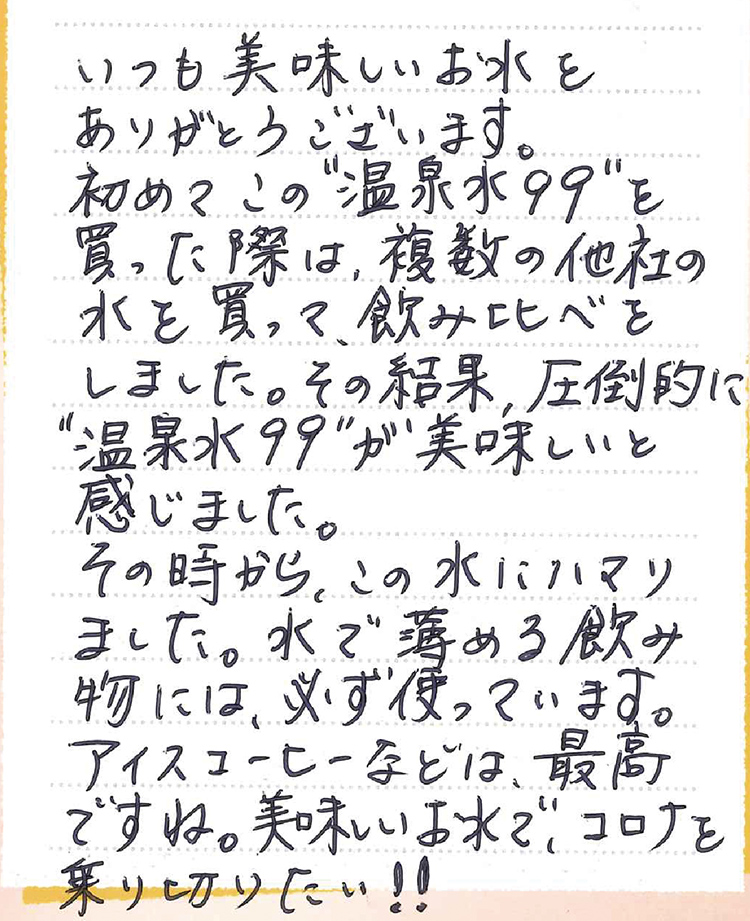 いつも美味しいお水を
ありがとうございます。
初めてこの"温泉水99"を
買った際は、複数の他社の
水を買って、飲み比べを
しました。その結果、圧倒的に
"温泉水99"が美味しいと
感じました。
その時から、この水にハマリ
ました。水で薄める飲み
物には、必ず使っています。
アイスコーヒーなどは、最高
ですね。美味しいお水で、コロナを
乗り切りたい!!